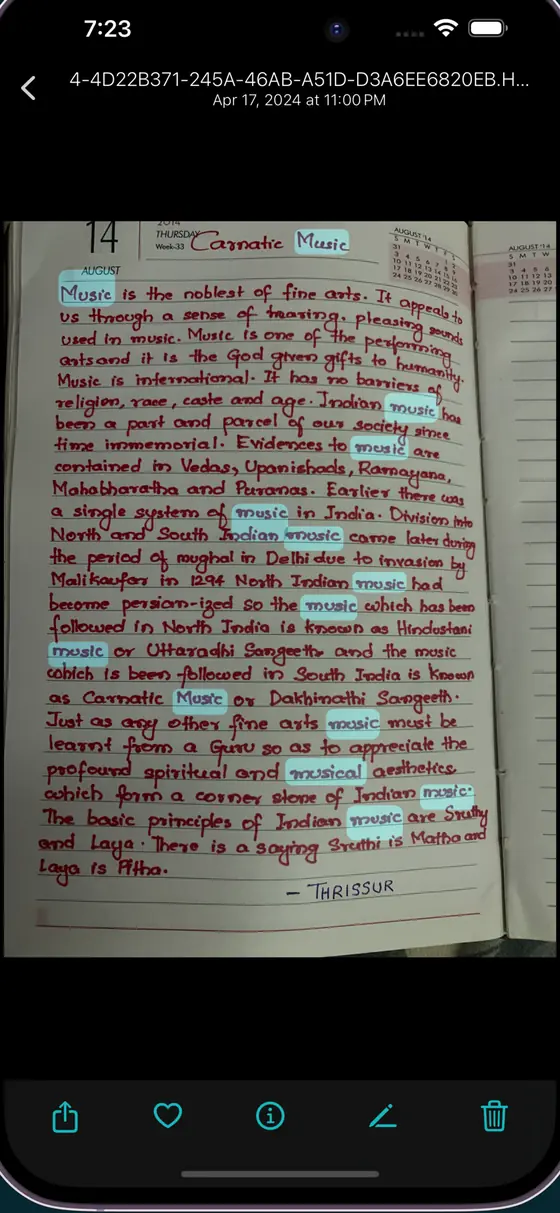 7:23
4-4D22B371-245A-46AB-A51D-D3A6EE6820EB.H...
Apr 17, 2024 at 11:00 PM
14
THURSDAY
Week-33
AUGUST
Carnatic Music
AUGUST '14
S M T W T F S
31 1 2
3 4 5 6 7 8 9
10 11 12 13 14 15 16
17 18 19 20 21 22 23
24 25 26 27 28 29 30
AUGUST '14
S M T W
31
3 4 5 6
10 11 12 13
17 18 19 20
24 25 26 27
Music is the noblest of fine arts. It appeals to
us through a sense of hearing. pleasing sounds
used in music. Music is one of the performing
arts and it is the God given gifts to humanity.
Music is international. It has no barriers of
religion, race, caste and age. Indian music has
been a part and parcel of our society since
time immemorial. Evidences to music are
contained in Vedas, Upanishads, Ramayana,
Mahabharatha and Puranas. Earlier there was
a single system of music in India. Division into
North and South Indian music came later during
the period of mughal in Delhi due to invasion by
Malikaufar in 1294 North Indian music had
become persian-ized so the music which has been
followed in North India is known as Hindustani
music or Uttaradhi Sangeeth and the music
which is been followed in South India is known
as Carnatic Music or Dakhinathi Sangeeth.
Just as any other fine arts music must be
learnt from a Guru so as to appreciate the
profound spiritual and musical aesthetics
which form a corner stone of Indian music.
The basic principles of Indian music are Sruthy
and Laya. There is a saying Sruthi is Matha and
Laya is Pitha.
- THRISSUR